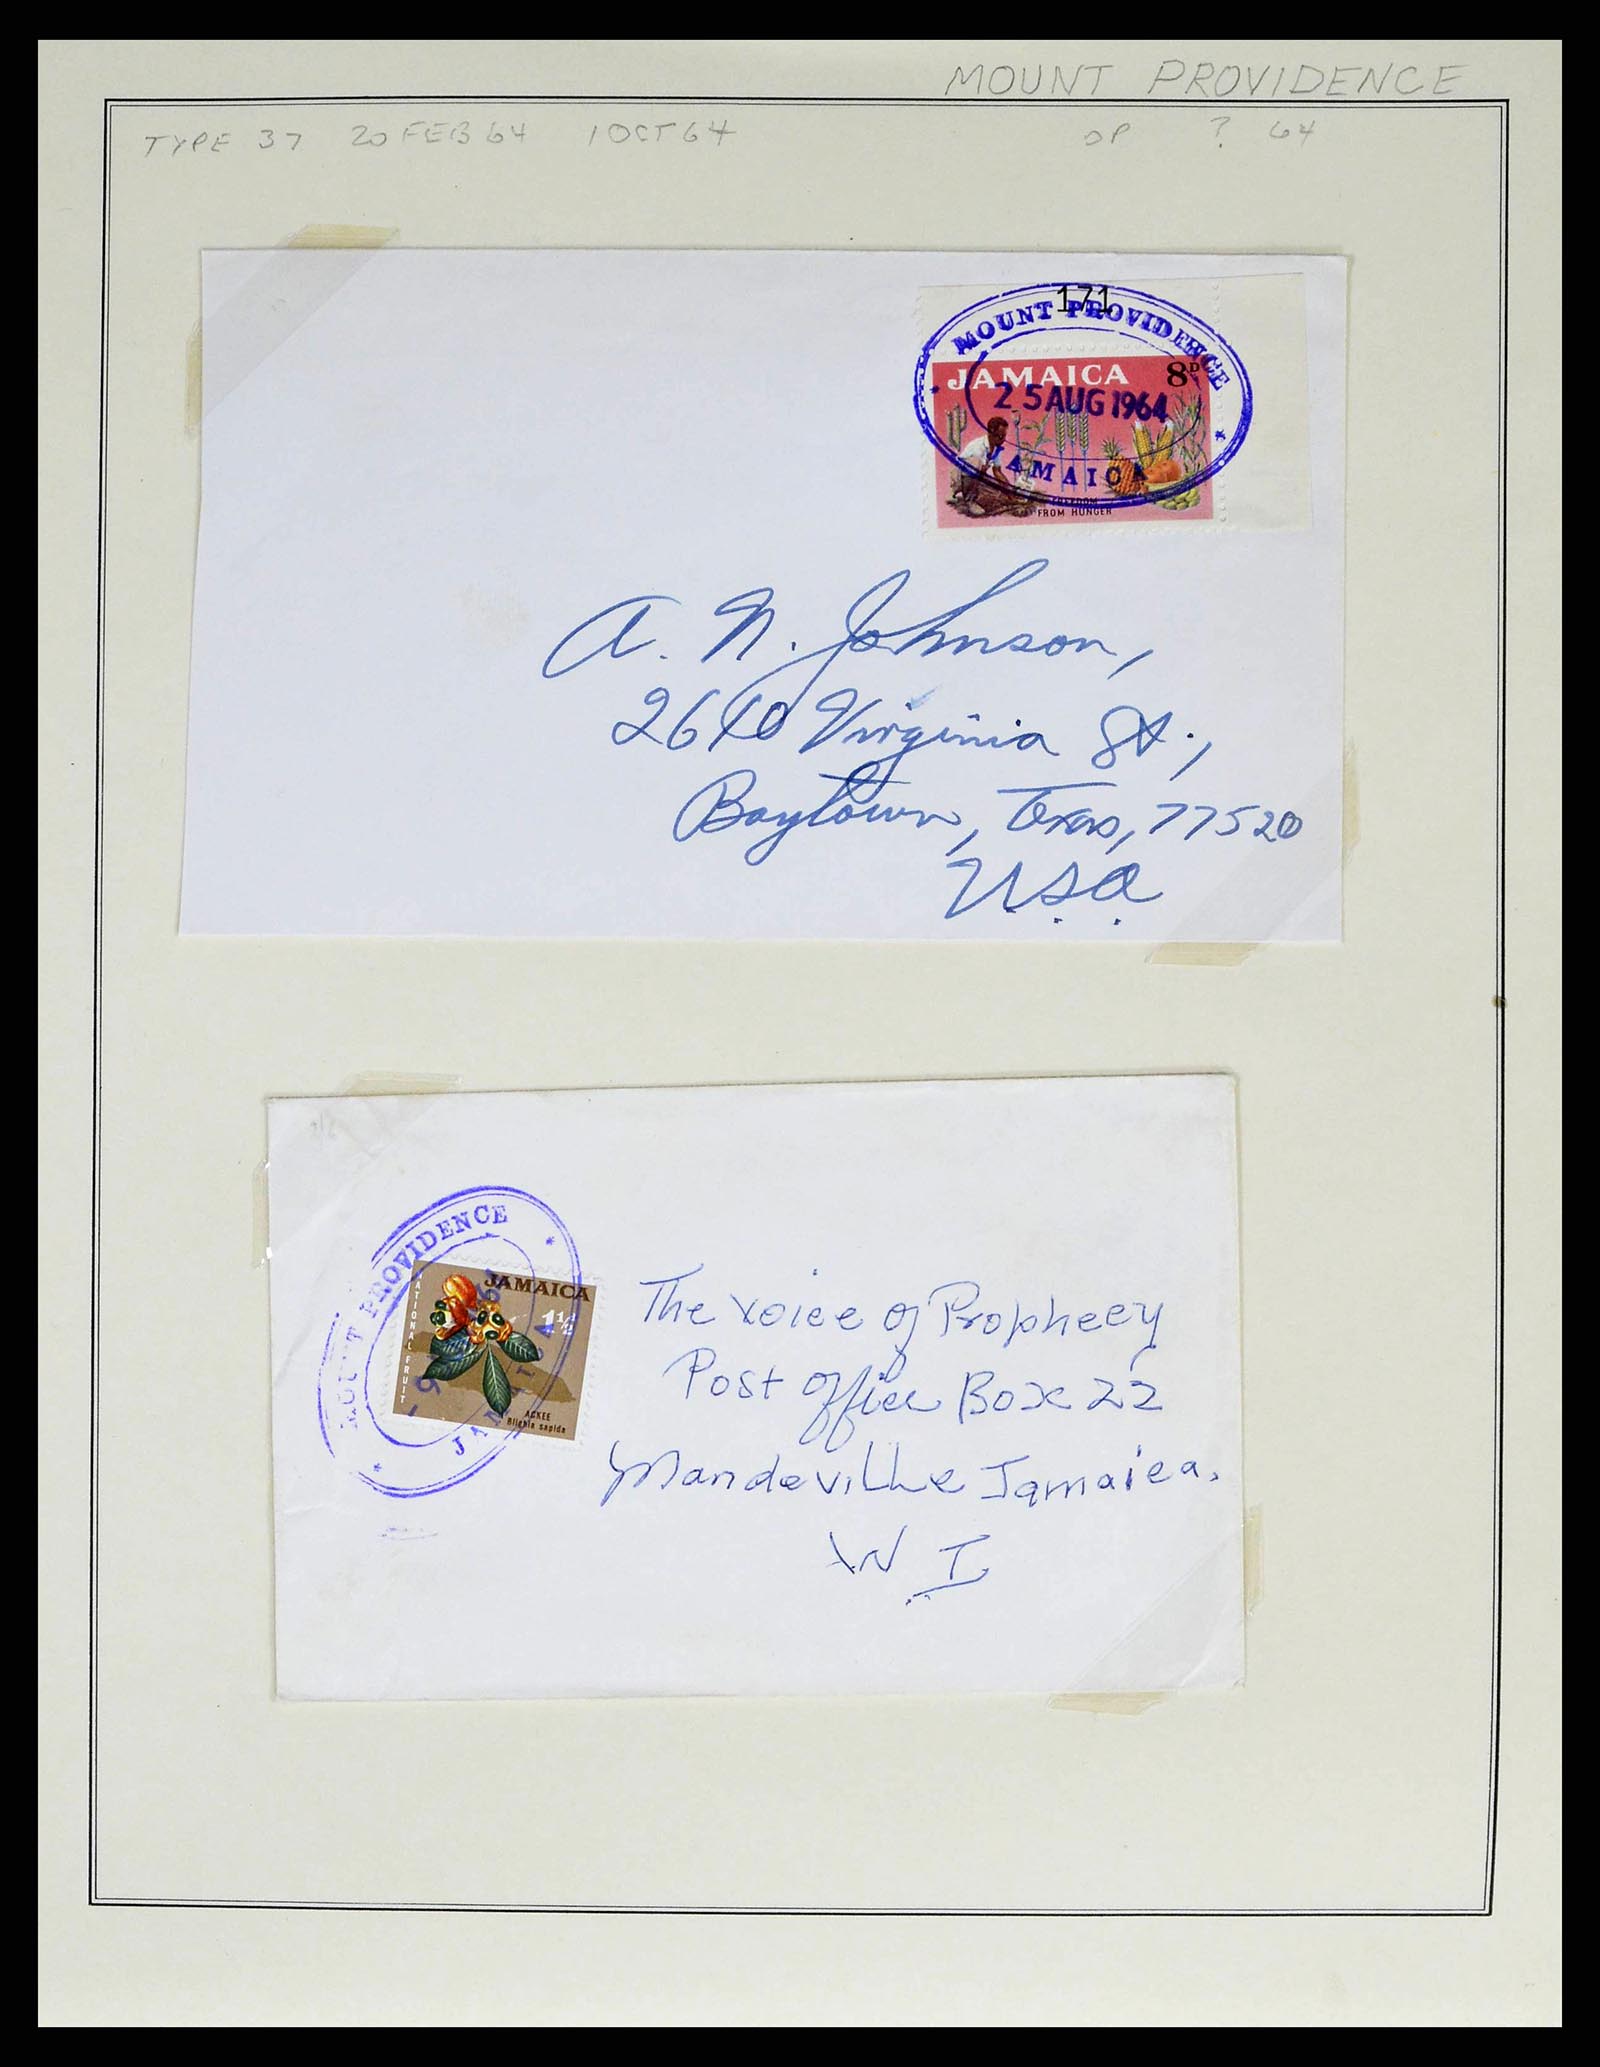 MOUNT PROVIDENCE
TYPE 37 20 FEB 64 1 OCT 64 ? 64
171
MOUNT PROVIDENCE
JAMAICA 8D
25 AUG 1964
JAMAICA
FREEDOM
FROM HUNGER
A. N. Johnson,
2610 Virginia St.,
Baytown, Texas, 77520
U.S.A.
MOUNT PROVIDENCE
JAMAICA
1½
NATIONAL FRUIT
ACKEE
Blighia sapida
JAMAICA
The voice of Prophecy
Post office Box 22
Mandeville Jamaica.
W I